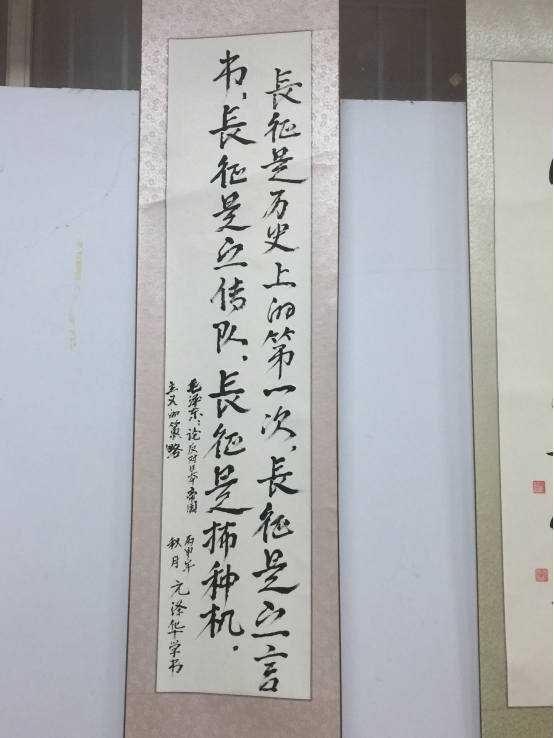 長征是历史上的第一次，長征是宣言
书，長征是宣传队，長征是播种机．
毛泽东：论反对日本帝国
主义的策略
丙申年
秋月 元泽华学书